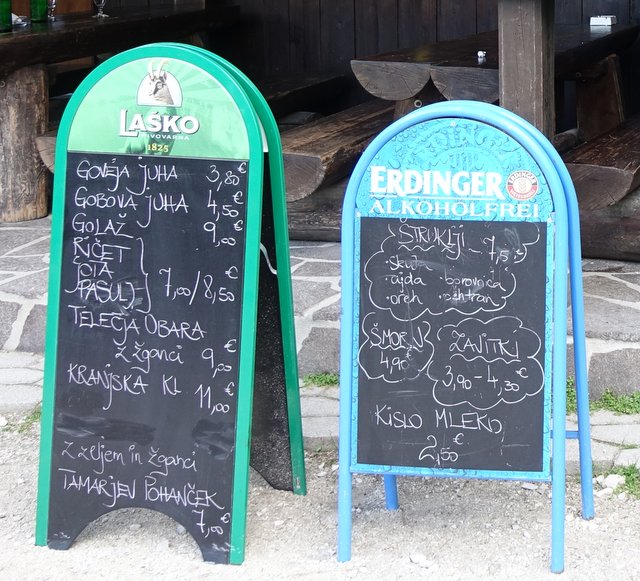 LAŠKO
PIVOVARNA
1825
GOVEJA JUHA 3,80 €
GOBOVA JUHA 4,50 €
GOLAŽ 9,00 €
RIČET
JOTA 7,00/8,50 €
PASULJ
TELEČJA OBARA
Z žganci 9,00 €
KRANJSKA KL. 11,00 €
Z zeljem in žganci
TAMARJEV POHANČEK
7,00 €
ERDINGER
ALKOHOLFREI
ŠTRUKLJI - 7,50 €
skuta
ajda borovnica
oreh pehtran
ŠMORN
4,90 €
ZAVITKI
3,90 - 4,30 €
KISLO MLEKO
2,50 €